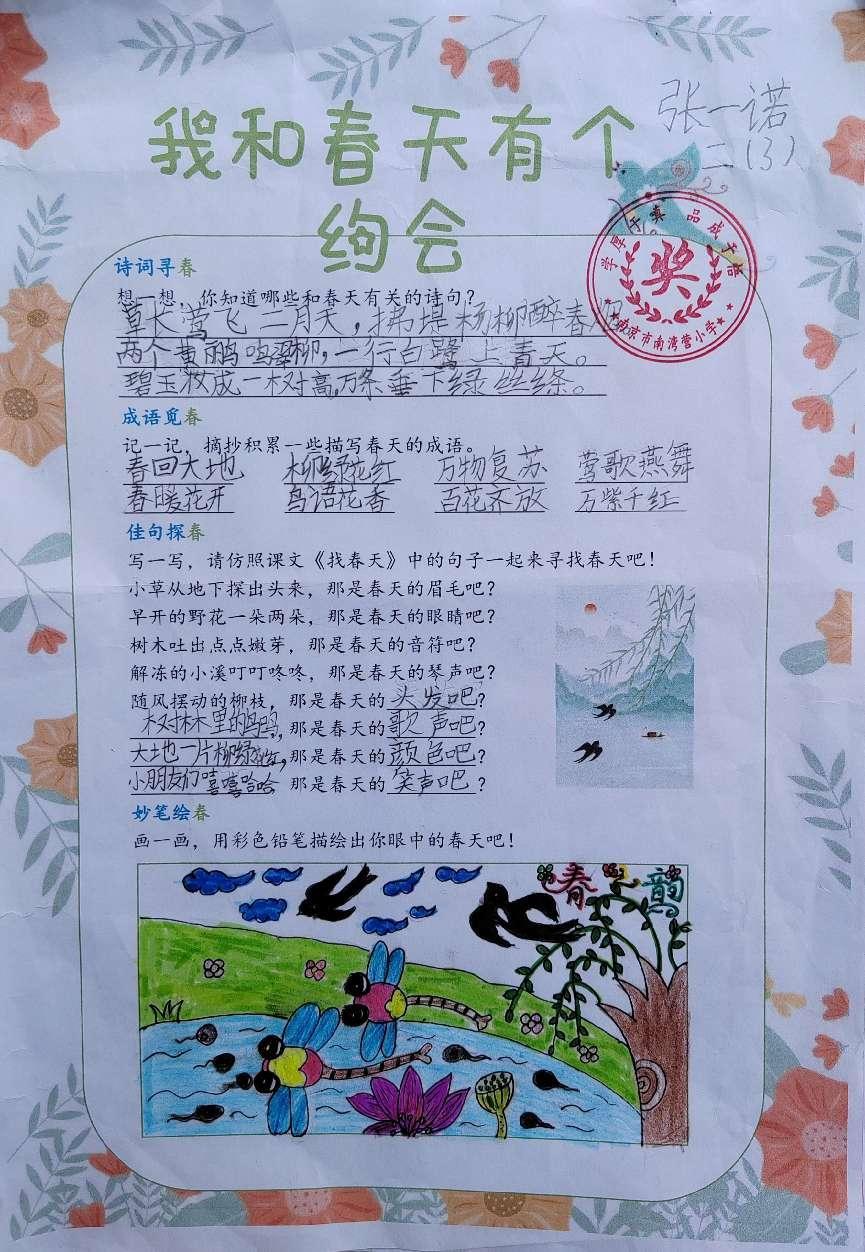 我和春天有个
绚会
张一诺
二(3)
学厚于真 品成于善
奖
南京市南湾营小学
诗词寻春
想一想，你知道哪些和春天有关的诗句？
草长莺飞二月天，拂堤杨柳醉春烟
两个黄鹂鸣翠柳，一行白鹭上青天。
碧玉妆成一树高，万条垂下绿丝绦。
成语觅春
记一记，摘抄积累一些描写春天的成语。
春回大地 柳绿花红 万物复苏 莺歌燕舞
春暖花开 鸟语花香 百花齐放 万紫千红
佳句探春
写一写，请仿照课文《找春天》中的句子一起来寻找春天吧！
小草从地下探出头来，那是春天的眉毛吧？
早开的野花一朵两朵，那是春天的眼睛吧？
树木吐出点点嫩芽，那是春天的音符吧？
解冻的小溪叮叮咚咚，那是春天的琴声吧？
随风摆动的柳枝，那是春天的头发吧？
树林里的鸟鸣，那是春天的歌声吧？
大地一片柳绿花红，那是春天的颜色吧？
小朋友们嘻嘻哈哈 那是春天的笑声吧？
妙笔绘春
画一画，用彩色铅笔描绘出你眼中的春天吧！
春 韵